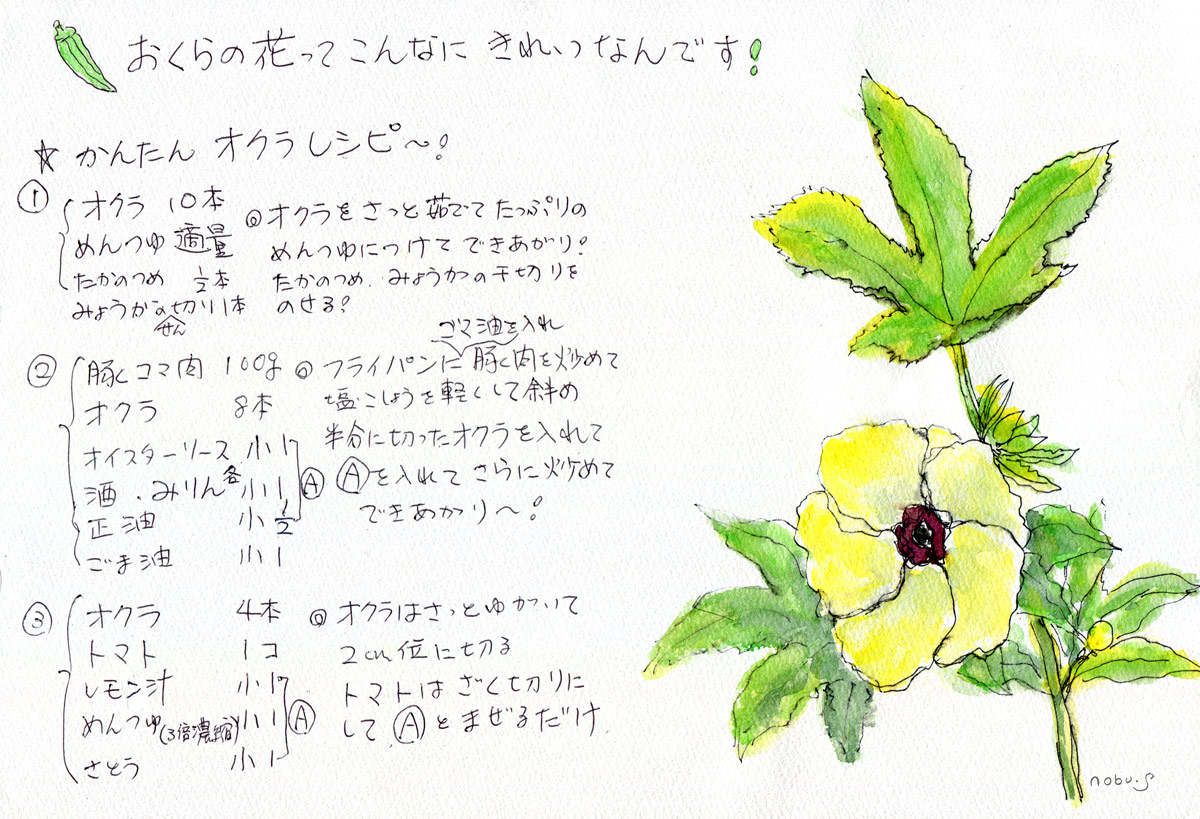 おくらの花ってこんなに きれいっなんです!
☆ かんたん オクラレシピ〜!
①
オクラ 10本
めんつゆ 適量
たかのつめ 1/2本
みょうがの千切り1本
せん
◎オクラをさっと茹でて たっぷりの
めんつゆにつけて できあがり!
たかのつめ、みょうがの千切りを
のせる!
②
豚コマ肉 100g
オクラ 8本
オイスターソース 小1
酒・みりん各小1
正油 小1/2
ごま油 小1
Ⓐ
ゴマ油を入れ
◎フライパンに豚肉を炒めて
塩こしょうを軽くして斜め
半分に切ったオクラを入れて
Ⓐを入れて さらに炒めて
できあがり〜!
③
オクラ 4本
トマト 1コ
レモン汁 小1
めんつゆ(3倍濃縮)小1
さとう 小1
Ⓐ
◎オクラはさっとゆがいて
2cm位に切る
トマトは ざく切りに
して Ⓐとまぜるだけ
nobu.s